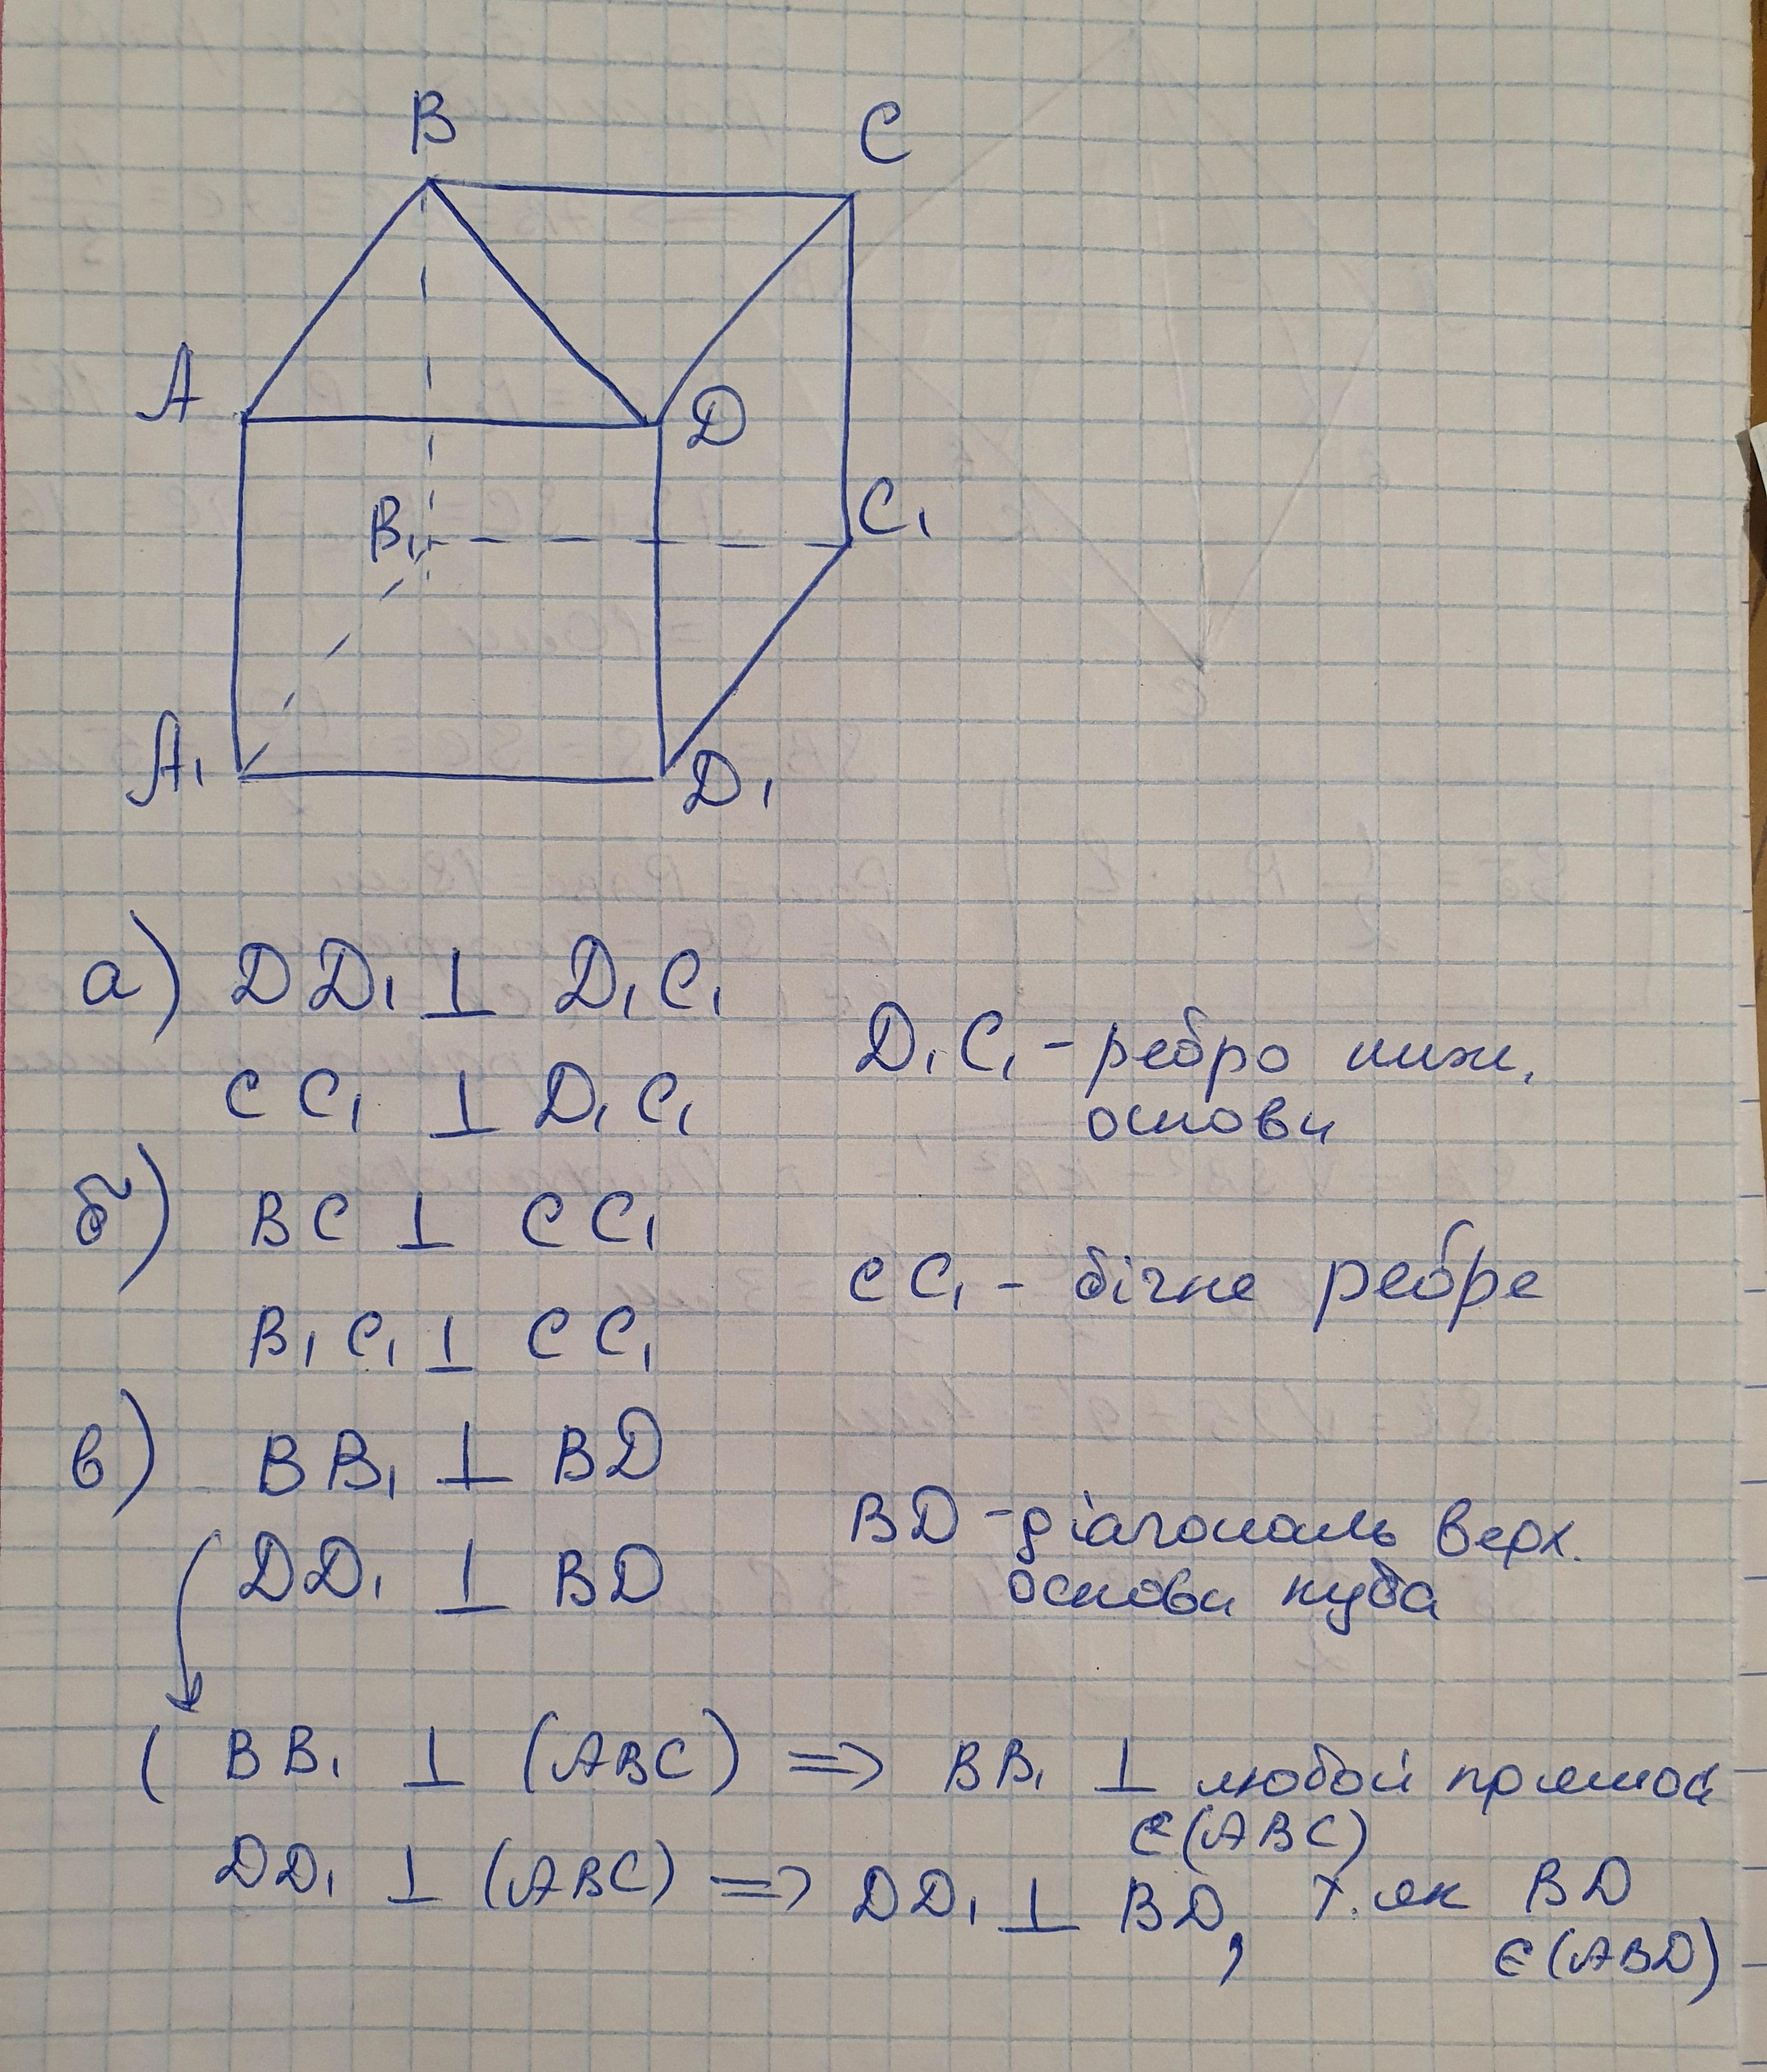 B
C
A
D
B₁
C₁
A₁
D₁
а) DD₁ ⊥ D₁C₁
D₁C₁ - ребро нижн.
основи
CC₁ ⊥ D₁C₁
б) BC ⊥ CC₁
CC₁ - бічне ребре
B₁C₁ ⊥ CC₁
в) BB₁ ⊥ BD
BD - діагональ верх.
основи куба
DD₁ ⊥ BD
( BB₁ ⊥ (ABC) => BB₁ ⊥ любой прямой
∈(ABC)
DD₁ ⊥ (ABC) => DD₁ ⊥ BD, т.як BD
∈(ABD)